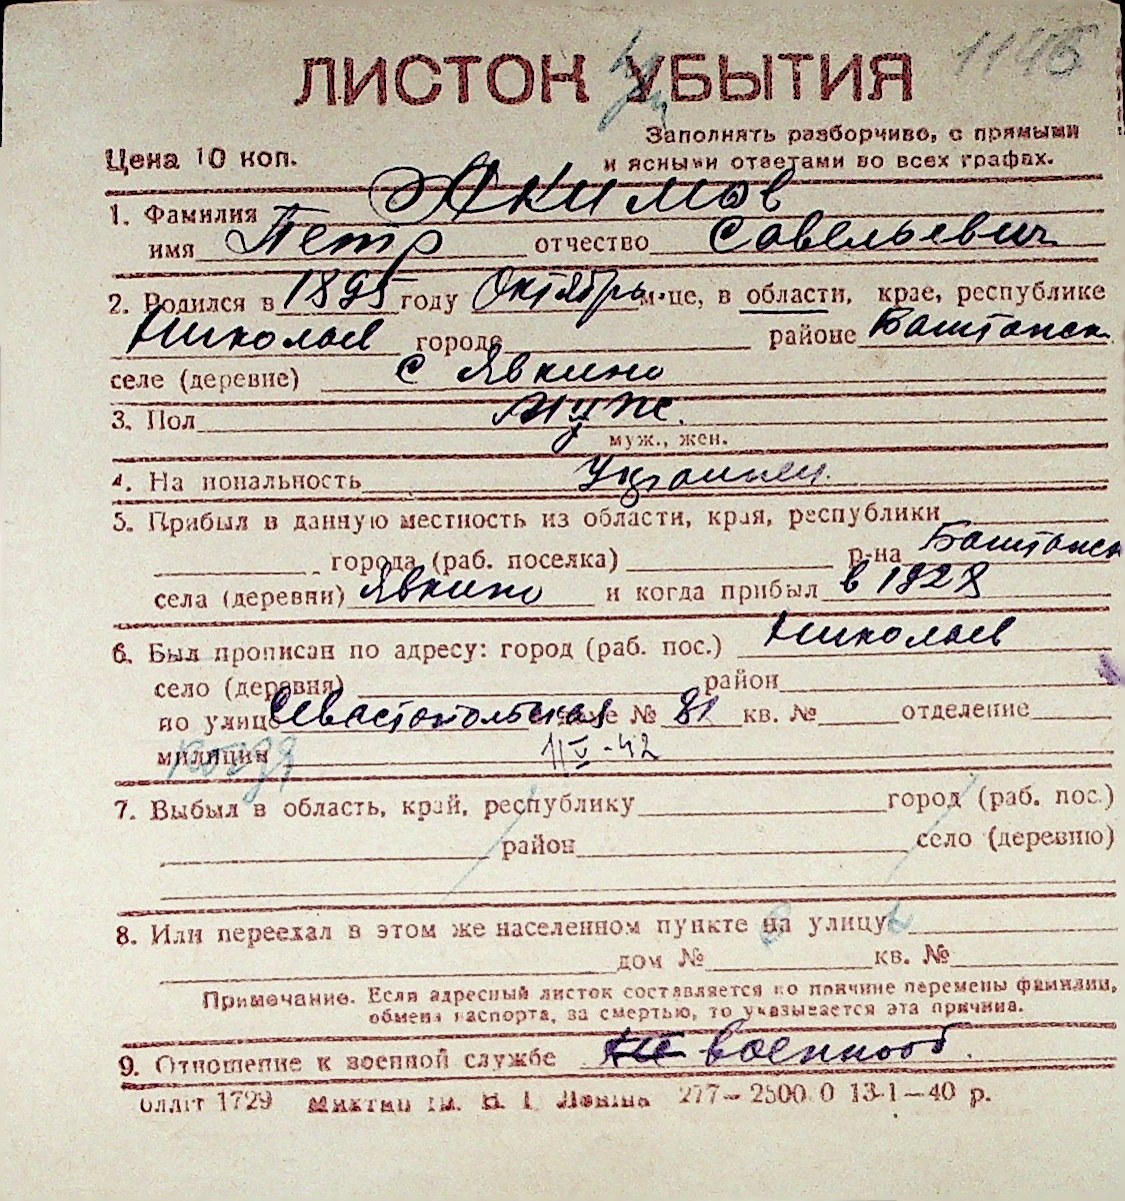 1146
ЛИСТОК УБЫТИЯ
Заполнять разборчиво, с прямыми
Цена 10 коп.
и ясными ответами во всех графах.
1. Фамилия Акимов
имя Петр отчество Савельевич
2. Родился в 1895 году Октябрь м-це, в области, крае, республике
Николаев городе районе Баштанск
селе (деревне) с Явкино
3. Пол муж.
муж., жен.
4. Национальность Украинец
5. Прибыл в данную местность из области, края, республики
города (раб. поселка) р-на Баштанск
села (деревни) Явкино и когда прибыл в 1928
6. Был прописан по адресу: город (раб. пос.) Николаев
село (деревня) район
по улице Севастопольская доме № 81 кв. № отделение
милиции 11 V-42
7. Выбыл в область, край, республику город (раб. пос.)
район село (деревню)
8. Или переехал в этом же населенном пункте на улицу
дом № кв. №
Примечание. Если адресный листок составляется по причине перемены фамилии,
обмена паспорта, за смертью, то указывается эта причина.
9. Отношение к военной службе не военнооб.
1729 277—2500 0 13-1—40 р.